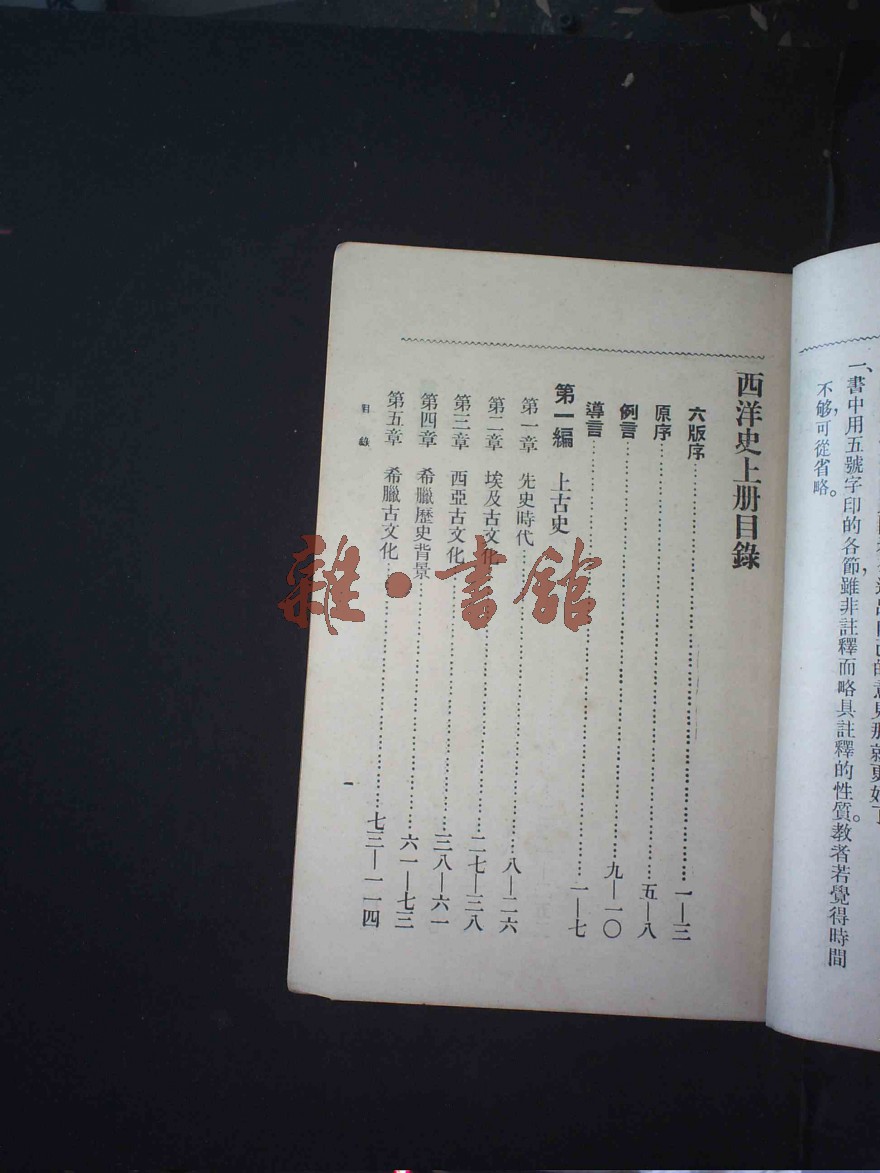 一、書中用五號字印的各節，雖非註釋而略具註釋的性質。教者若覺得時間
不够，可從省略。
西洋史上册目錄
六版序……一—三
原序……五—八
例言……九—一〇
導言……一—七
第一編　上古史
第一章　先史時代……八—二六
第二章　埃及古文化……二七—三八
第三章　西亞古文化……三八—六一
第四章　希臘歷史背景……六一—七三
第五章　希臘古文化……七三—一一四
目錄
一
雜·書館